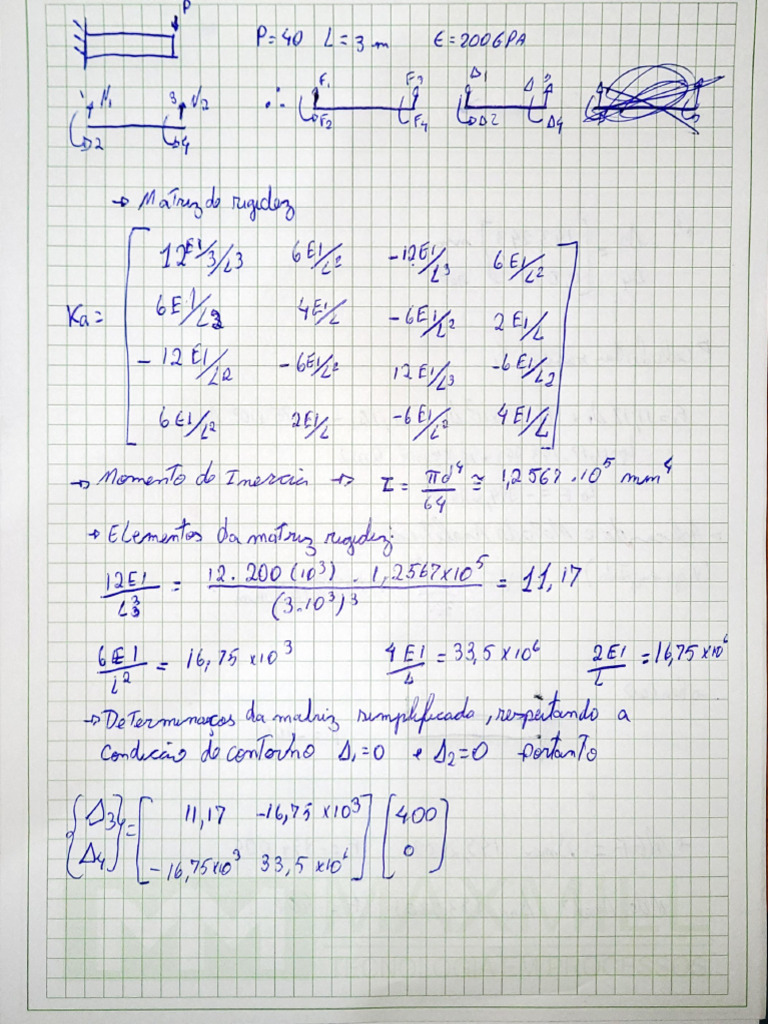 P
P=40 L=3 m E=200GPA
1 N1 3 N2 ∴ F1 F3 Δ1 Δ3
D2 D4 F2 F4 Δ2 Δ4
→ Matriz de rigidez
Ka= [ 12EI/3/L3 6EI/L² -12EI/L3 6EI/L²
6EI/L2 4EI/L -6EI/L² 2EI/L
-12EI/L2 -6EI/L² 12EI/L3 -6EI/L2
6EI/L² 2EI/L -6EI/L² 4EI/L ]
→ Momento de Inercia → I = πd⁴/64 ≅ 1,2567.10⁵ mm⁴
→ Elementos da matriz rigidez:
12EI/L³ = 12.200(10³).1,2567x10⁵/(3.10³)³ = 11,17
6EI/L² = 16,75x10³ 4EI/L = 33,5x10⁶ 2EI/L = 16,75x10⁶
→ Determinaços da matriz simplificada, respeitando a
condição do contorno Δ1=0 e Δ2=0 portanto
{Δ3} = [ 11,17 -16,75x10³ ] [400]
{Δ4} [ -16,75x10³ 33,5x10⁶ ] [0]